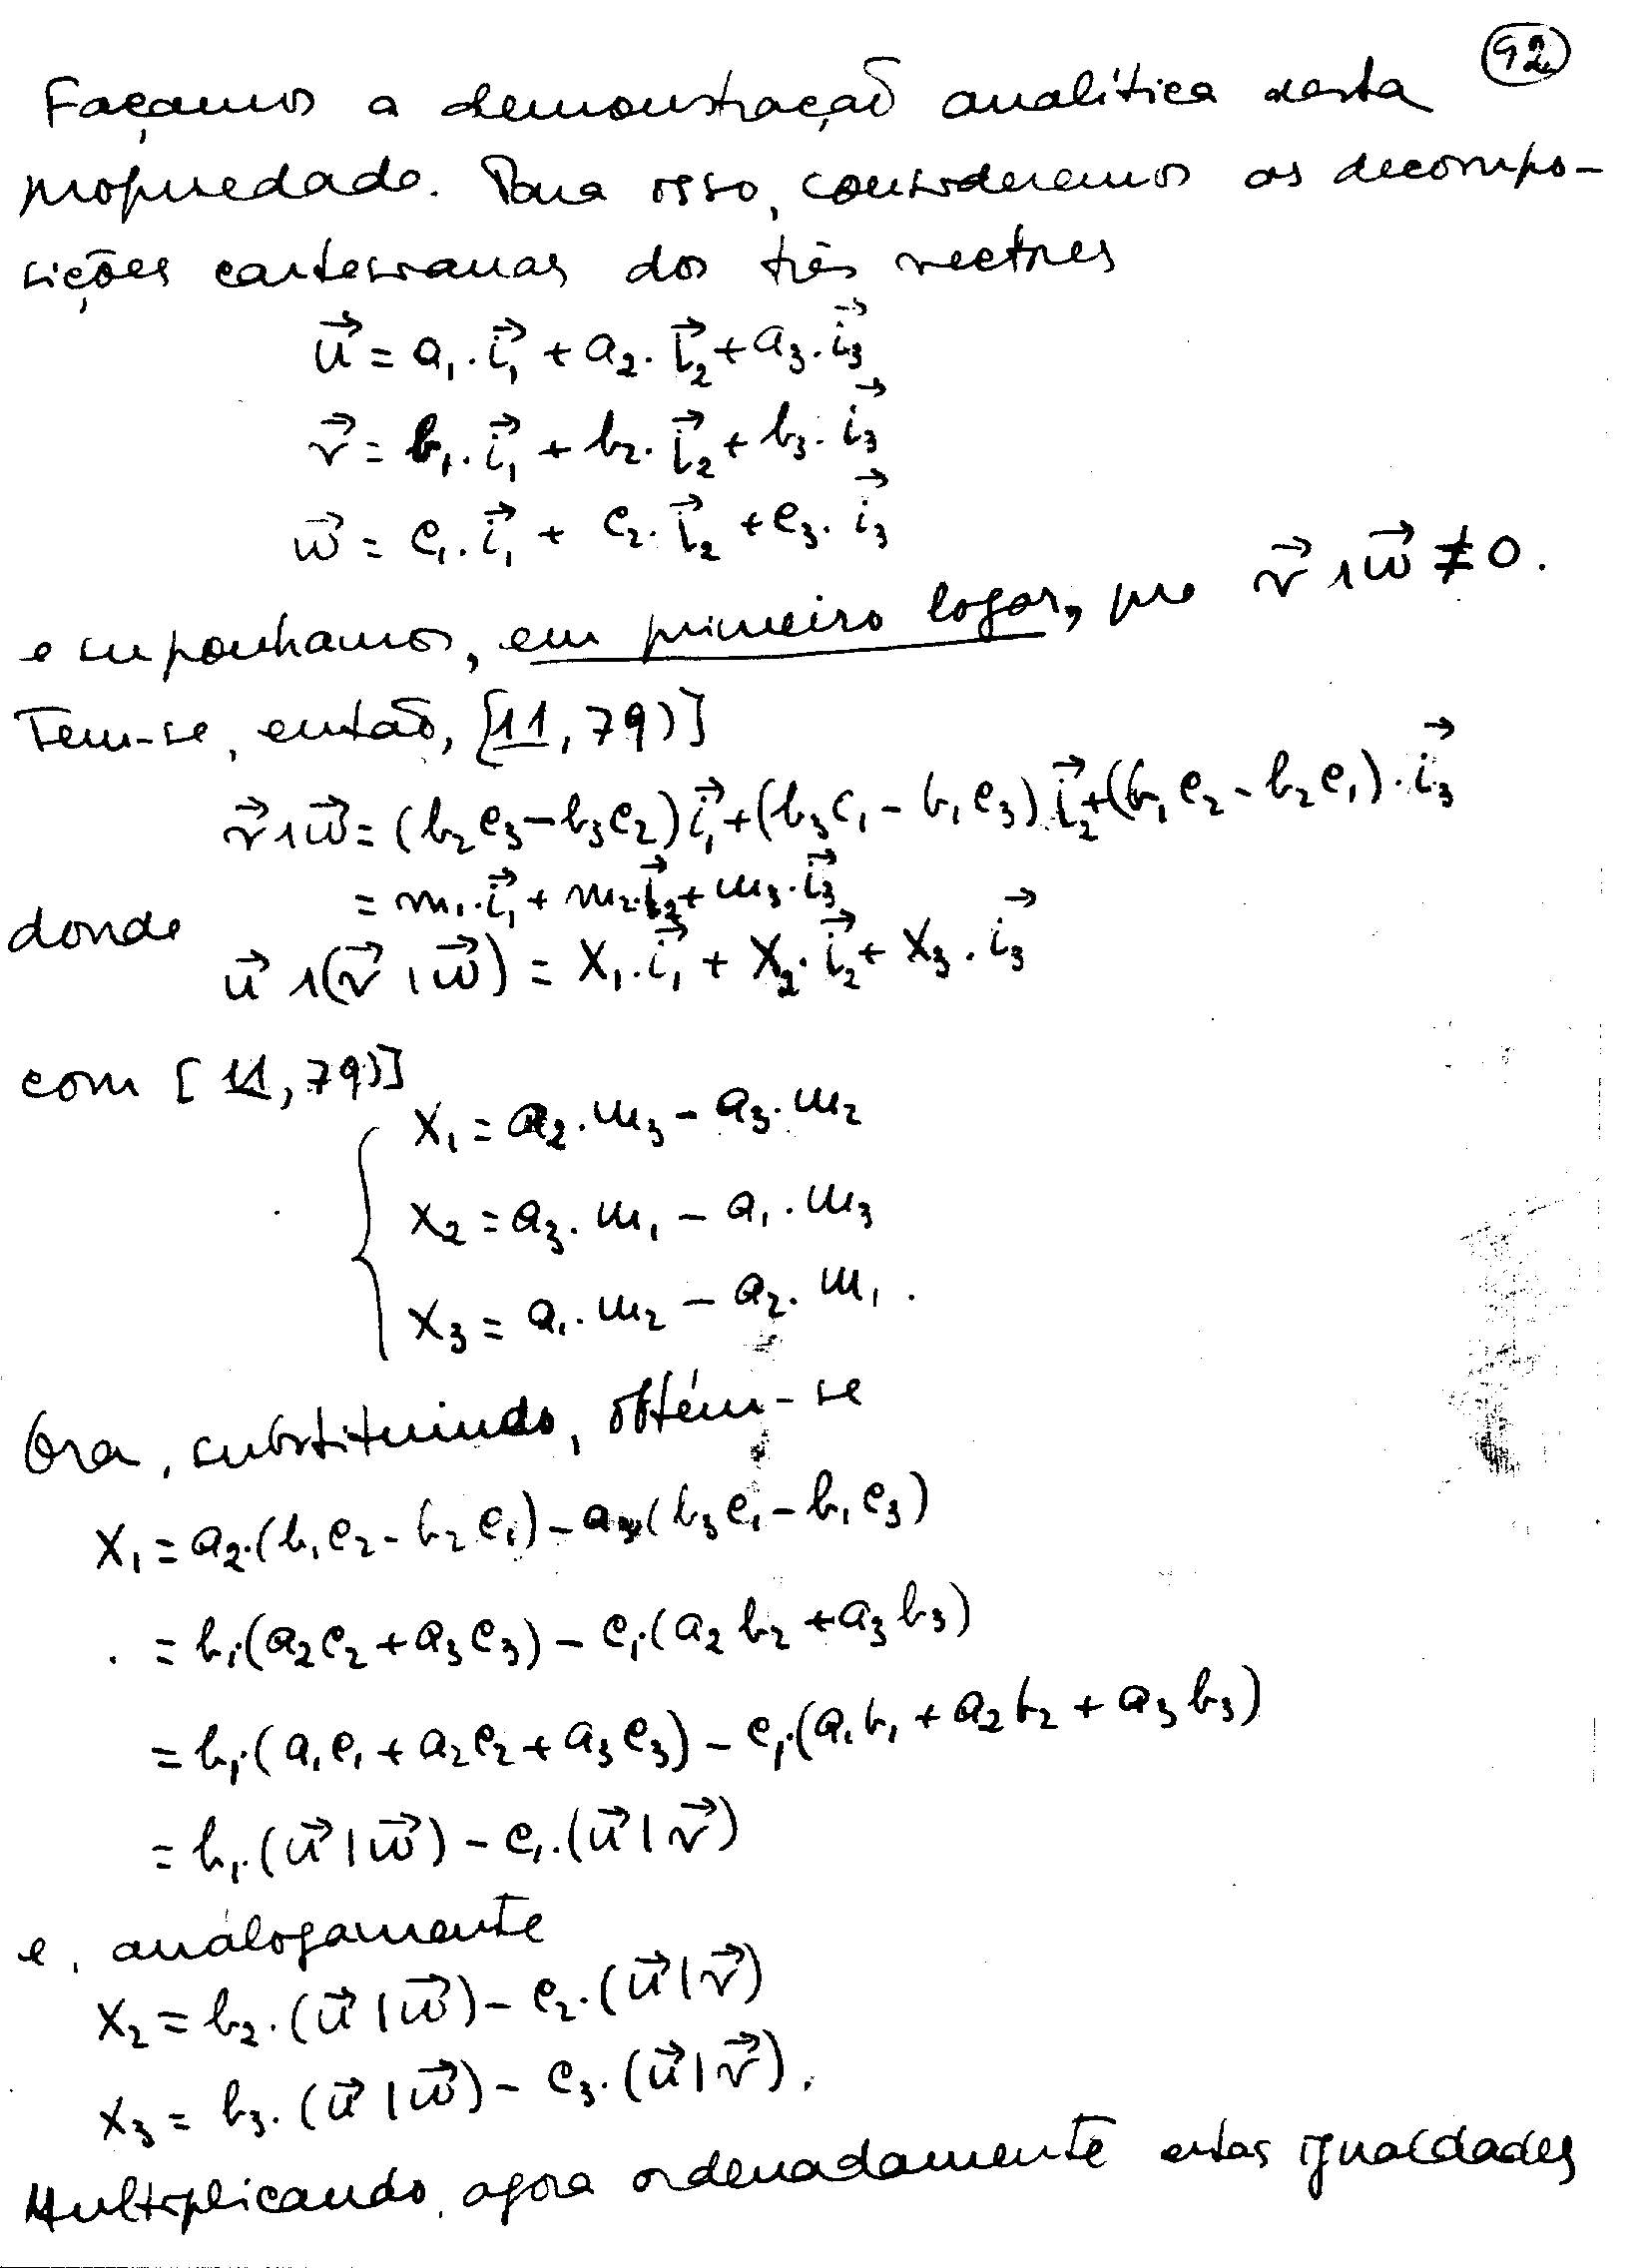 92
Façamos a demonstração analítica desta
propriedade. Para isso, consideremos as decompo-
sições cartesianas dos três vectores
u⃗ = a₁.i⃗₁ + a₂.i⃗₂ + a₃.i⃗₃
v⃗ = b₁.i⃗₁ + b₂.i⃗₂ + b₃.i⃗₃
w⃗ = c₁.i⃗₁ + c₂.i⃗₂ + c₃.i⃗₃
e suponhamos, em primeiro logar, que v⃗ ∧ w⃗ ≠ 0.
Tem-se, então, [11, 79)]
v⃗ ∧ w⃗ = (b₂c₃ − b₃c₂) i⃗₁ + (b₃c₁ − b₁c₃).i⃗₂ + (b₁c₂ − b₂c₁).i⃗₃
= m₁.i⃗₁ + m₂.i⃗₂ + m₃.i⃗₃
donde
u⃗ ∧ (v⃗ ∧ w⃗) = X₁.i⃗₁ + X₂.i⃗₂ + X₃.i⃗₃
com [11, 79)]
X₁ = a₂.m₃ − a₃.m₂
X₂ = a₃.m₁ − a₁.m₃
X₃ = a₁.m₂ − a₂.m₁.
Ora, substituindo, obtém-se
X₁ = a₂.(b₁c₂ − b₂c₁) − a₃(b₃c₁ − b₁c₃)
= b₁.(a₂c₂ + a₃c₃) − c₁.(a₂b₂ + a₃b₃)
= b₁.(a₁c₁ + a₂c₂ + a₃c₃) − c₁.(a₁b₁ + a₂b₂ + a₃b₃)
= b₁.(u⃗ | w⃗) − c₁.(u⃗ | v⃗)
e, análogamente
X₂ = b₂.(u⃗ | w⃗) − c₂.(u⃗ | v⃗)
X₃ = b₃.(u⃗ | w⃗) − c₃.(u⃗ | v⃗).
Multiplicando, agora ordenadamente estas igualdades